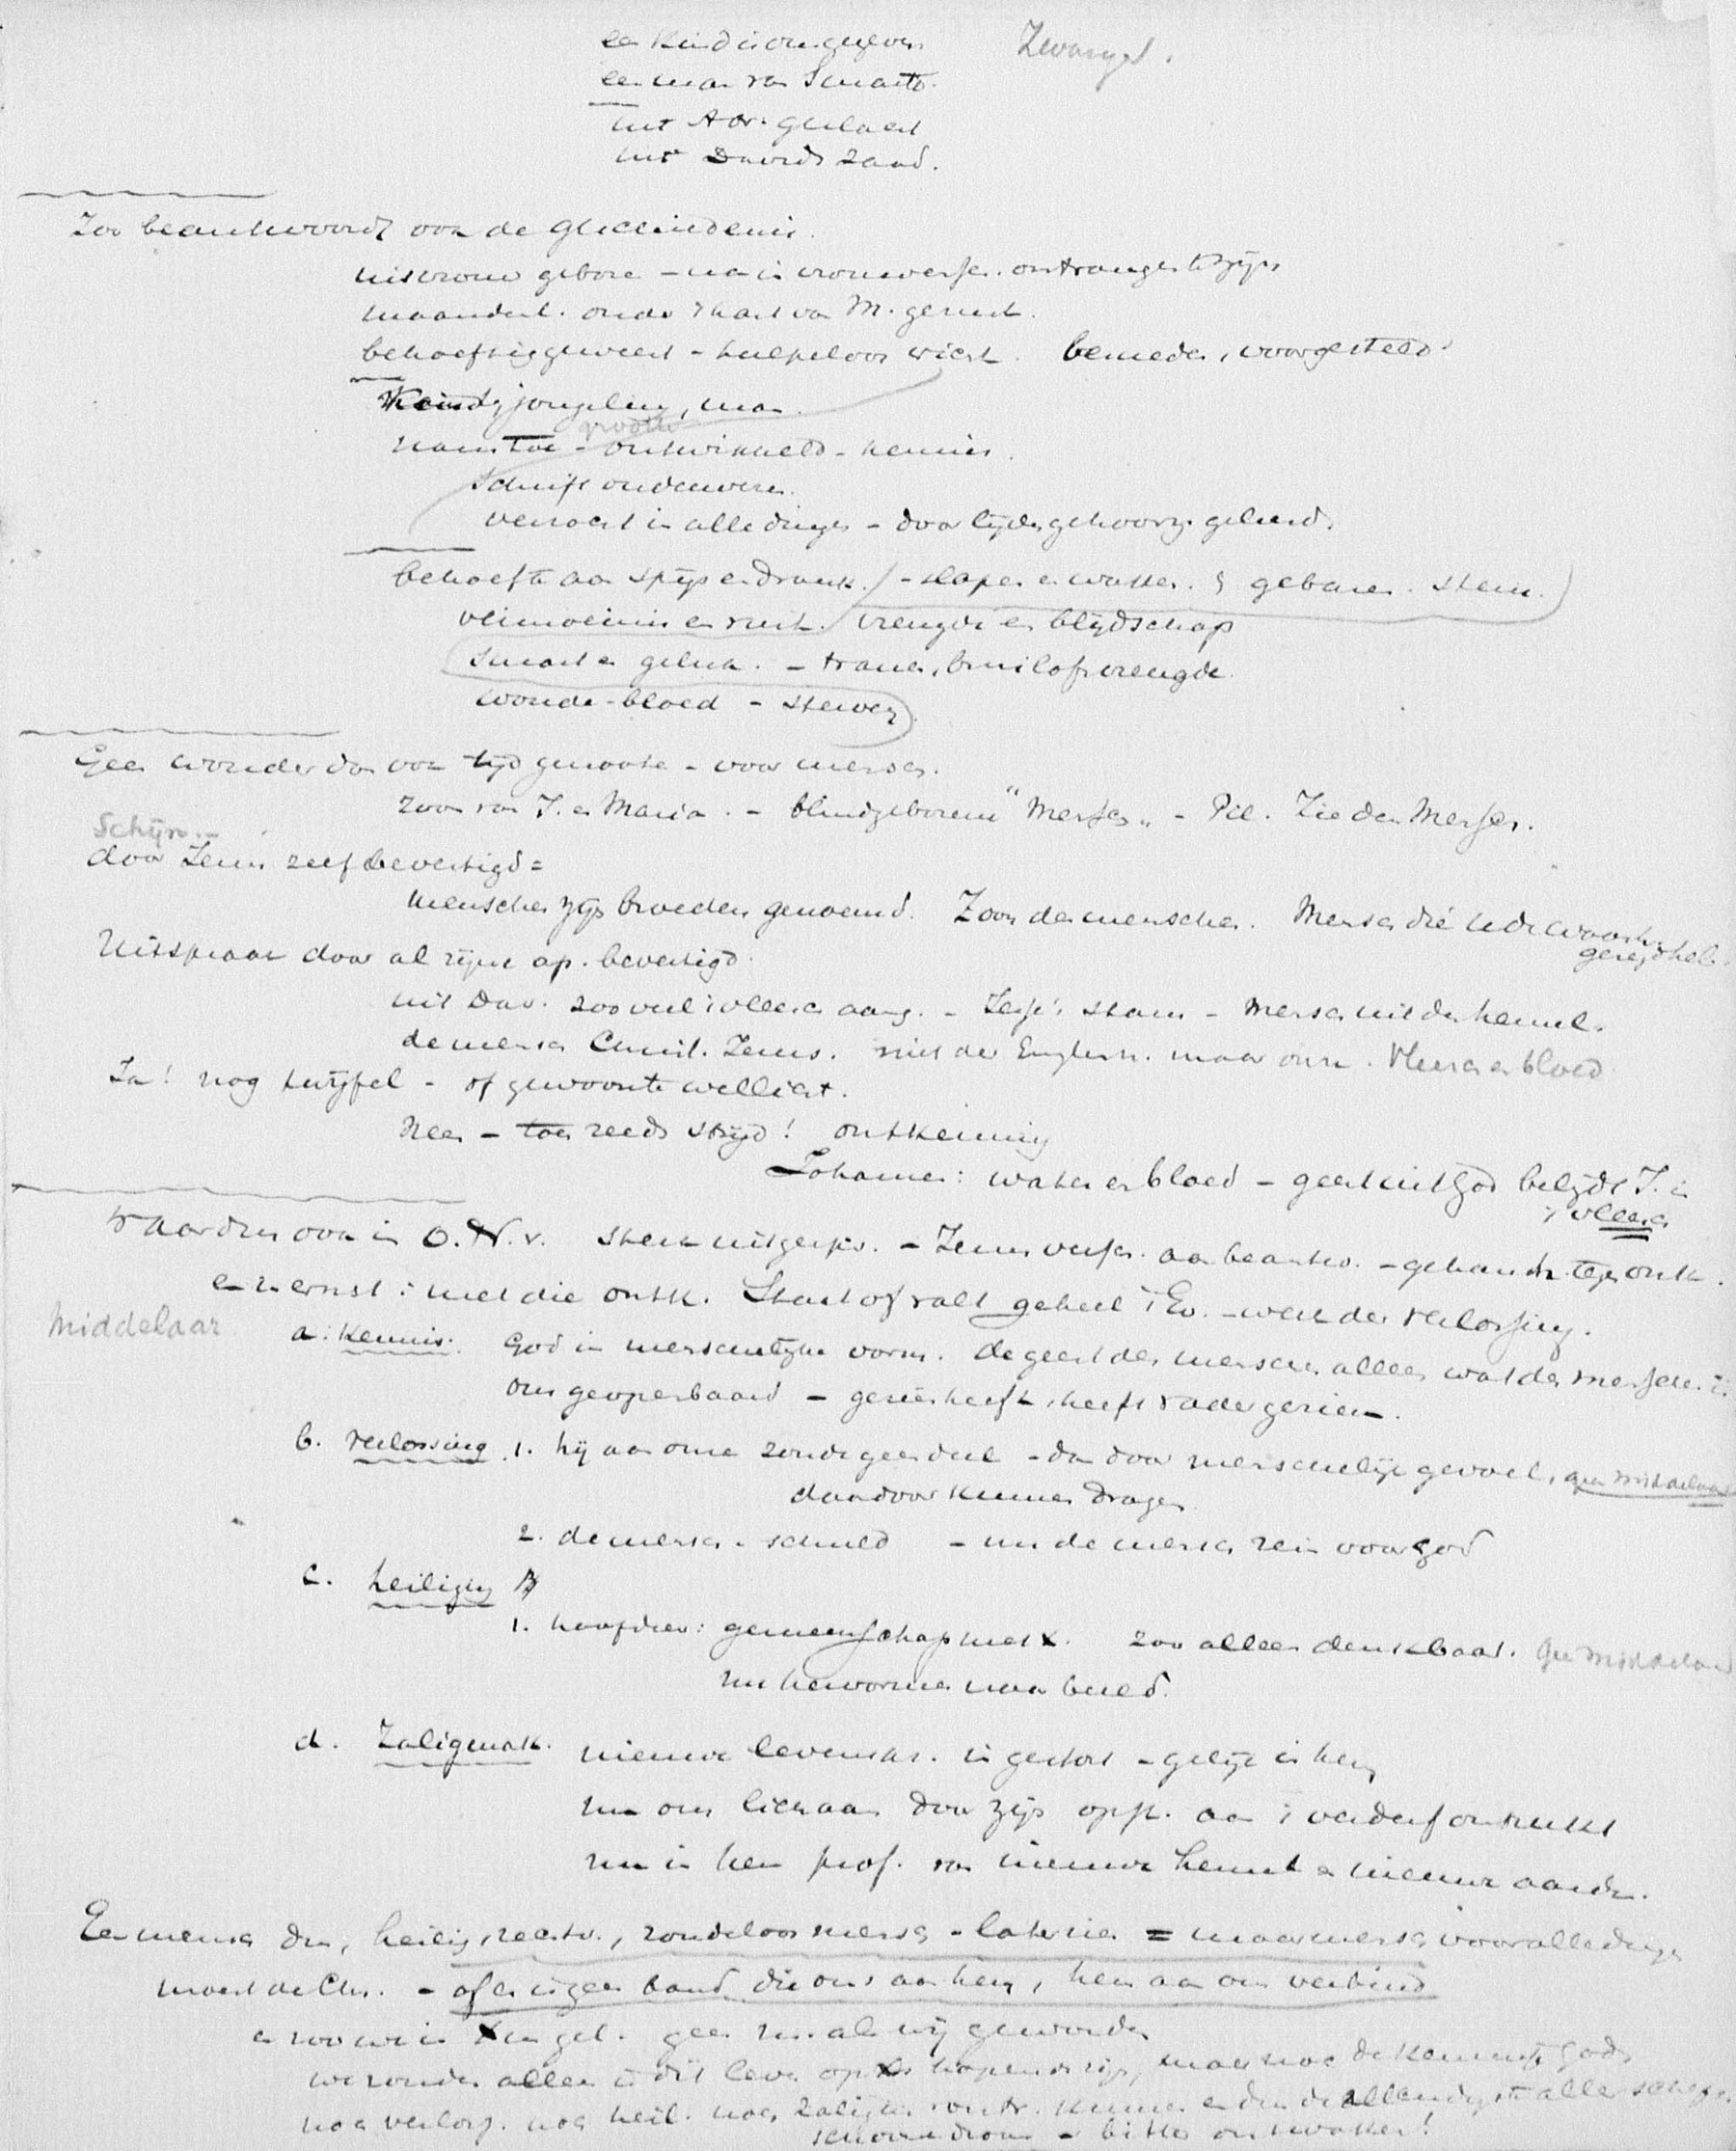 een kind is ons gegeven Zwanger.
een man van Smarte.
uit Abr. geslacht
uit Davids zaad.
Zoo beantwoordt ook de geschiedenis.
uit vrouw geboren - na in vrouwensch. ontvangen te zijn
maanden l. onder 't hart van M. gerust.
behoeftig geweest - hulpeloos wicht. besneden, voorgesteld.
Kind, jongeling, man
nam toe - grootte ontwikkeld - kennis.
Schrift onderwezen.
verzocht in alle dingen - door lijden gehoorz. geleerd.
behoefte aan spijs en drank. - slapen en waken. gebaren. stem.
vermoeienis en rust. vreugde en blijdschap
smart en geluk. - tranen, bruiloftsvreugde.
wonde - bloed - sterven
Geen wonder dan ook tijdgenooten - voor mensch.
zoon van J. en Maria. - blindgeborene "Mensch" - Pil. Zie den Mensch.
Schijn.-
door Jezus zelf bevestigd =
menschen zijn broeders genoemd. Zoon des menschen. Mensch die u de waarh. gezegd heb.
Uitspraak door al zijne ap. bevestigd.
uit Dav. zooveel 't vleesch aang. - Isai's stam - mensch uit den hemel.
de mensch Christ. Jezus. niet der Engelen n. maar onze. vleesch en bloed.
Ja! nog twijfel - of gewoonte wellicht.
Neen - toen reeds strijd! ontkenning
Johannes: water en bloed - geest uit God belijdt J. in 't vleesch
Waarom ook in O. N. v. sterk uitgespr. - Jezus versch. aan beantw. - gehandh. tegen ontk.
en in ernst: met die ontk. Staat of valt geheel 't Ev. - werk der verlossing.
Middelaar a: Kennis. God in menschelijke vorm. de geest des menschen alleen wat des menschen is
ons geopenbaard - gezien heeft, heeft Vader gezien.
b. verlossing. 1. hij aan onze zonde geen deel - dan door menschelijk gevoel, geen middelaar
daardoor kunnen dragen.
2. de mensch - schuld - nu de mensch rein voor God
c. heiliging
1. hoofdidee: gemeenschap met X. zoo alleen denkbaar. geen middelaar
nu hervormen naar beeld.
d. Zaligmak. nieuwe levenskr. in gestort - gelijk in hem
nu ons lichaam door zijn opst. aan 't verderf ontrukt
nu in hem prof. van nieuwe hemel en nieuwe aarde.
Een mensch dus, heilig, rechtv., zondeloos mensch - later zien = maar mensch vooral le dingen
moest de Chr. - of er is geen band die ons aan hem, hem aan ons verbind
en zoo wie in X en gel. geen m. als wij geworden
we zouden alleen in dit leven op X hopende zijn, maar noch de kennisse Gods
noch verlos. noch heil. noch zaligm. ontv. kunnen en dus de ellendigste aller schepselen
schoone droom - bitter ontwaken!